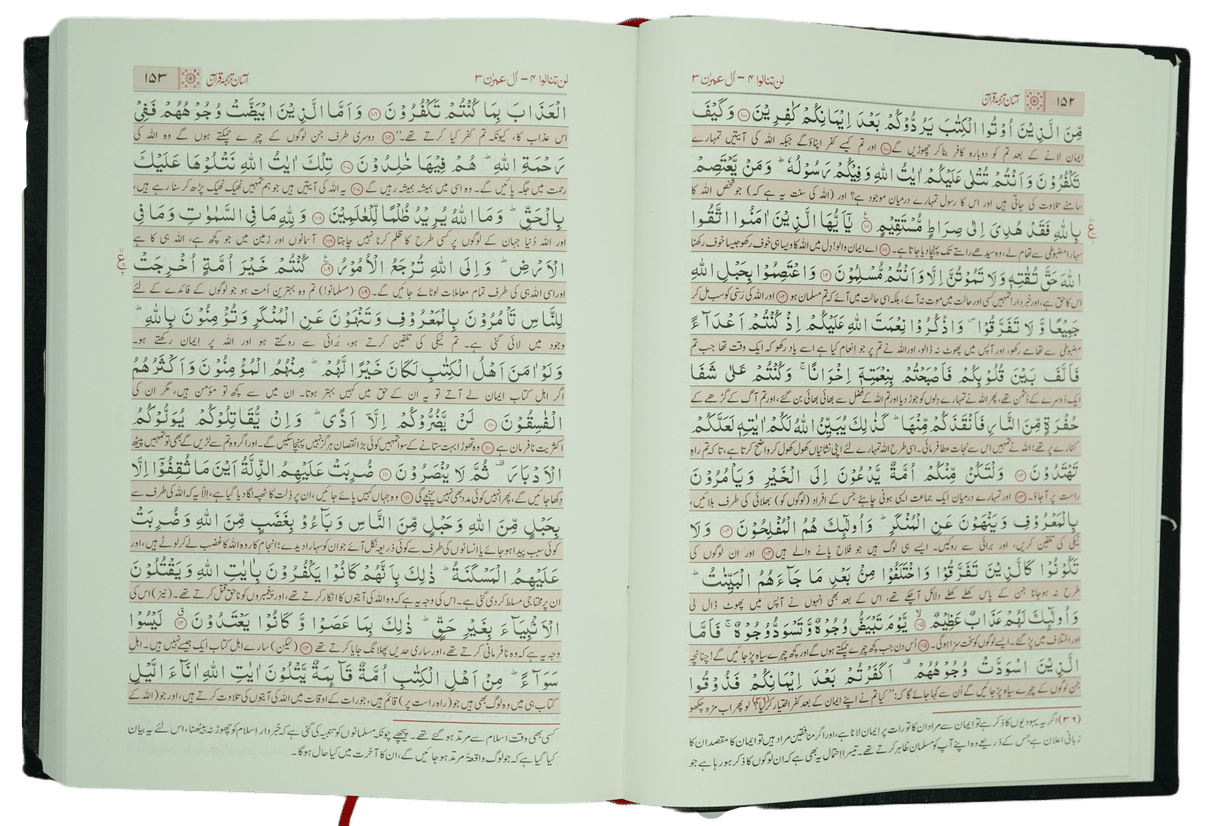 ۱۵۲ آسان ترجمۂ قرآن لن تنالوا ۴ - اٰل عمرٰن ۳
مِّنَ الَّذِيْنَ اُوْتُوا الْكِتٰبَ يَرُدُّوْكُمْ بَعْدَ اِيْمَانِكُمْ كٰفِرِيْنَ ﴿۱۰۰﴾ وَكَيْفَ
ایمان لانے کے بعد تم کو دوبارہ کافر بنا کر چھوڑیں گے ﴿۱۰۰﴾ اور تم کیسے کفر اپناؤ گے جبکہ اللہ کی آیتیں تمہارے
تَكْفُرُوْنَ وَاَنْتُمْ تُتْلٰى عَلَيْكُمْ اٰيٰتُ اللّٰهِ وَفِيْكُمْ رَسُوْلُهٗ ؕ وَمَنْ يَّعْتَصِمْ
سامنے تلاوت کی جاتی ہیں اور اس کا رسول تمہارے درمیان موجود ہے؟ اور (اللہ کی سنت یہ ہے کہ) جو شخص اللہ کا
بِاللّٰهِ فَقَدْ هُدِىَ اِلٰى صِرَاطٍ مُّسْتَقِيْمٍ ﴿۱۰۱﴾ يٰٓاَيُّهَا الَّذِيْنَ اٰمَنُوا اتَّقُوا
سہارا مضبوطی سے تھام لے، وہ سیدھے راستے تک پہنچا دیا جاتا ہے۔ ﴿۱۰۱﴾ اے ایمان والو! دل میں اللہ کا ویسا ہی خوف رکھو جیسا خوف رکھنا
اللّٰهَ حَقَّ تُقٰتِهٖ وَلَا تَمُوْتُنَّ اِلَّا وَاَنْتُمْ مُّسْلِمُوْنَ ﴿۱۰۲﴾ وَاعْتَصِمُوْا بِحَبْلِ اللّٰهِ
اس کا حق ہے، اور خبردار! تمہیں کسی اور حالت میں موت نہ آئے، بلکہ اسی حالت میں آئے کہ تم مسلمان ہو ﴿۱۰۲﴾ اور اللہ کی رسّی کو سب مل کر
جَمِيْعًا وَّلَا تَفَرَّقُوْا ۪ وَاذْكُرُوْا نِعْمَتَ اللّٰهِ عَلَيْكُمْ اِذْ كُنْتُمْ اَعْدَآءً
مضبوطی سے تھامے رکھو، اور آپس میں پھوٹ نہ ڈالو، اور اللہ نے تم پر جو انعام کیا ہے اسے یاد رکھو کہ ایک وقت تھا جب تم
فَاَلَّفَ بَيْنَ قُلُوْبِكُمْ فَاَصْبَحْتُمْ بِنِعْمَتِهٖۤ اِخْوَانًا ۚ وَكُنْتُمْ عَلٰى شَفَا
ایک دوسرے کے دشمن تھے، پھر اللہ نے تمہارے دلوں کو جوڑ دیا اور تم اللہ کے فضل سے بھائی بھائی بن گئے، اور تم آگ کے گڑھے کے
حُفْرَةٍ مِّنَ النَّارِ فَاَنْقَذَكُمْ مِّنْهَا ؕ كَذٰلِكَ يُبَيِّنُ اللّٰهُ لَكُمْ اٰيٰتِهٖ لَعَلَّكُمْ
کنارے پر تھے؛ اللہ نے تمہیں اس سے نجات عطا فرمائی۔ اسی طرح اللہ تمہارے لئے اپنی نشانیاں کھول کھول کر واضح کرتا ہے، تاکہ تم راہِ
تَهْتَدُوْنَ ﴿۱۰۳﴾ وَلْتَكُنْ مِّنْكُمْ اُمَّةٌ يَّدْعُوْنَ اِلَى الْخَيْرِ وَيَاْمُرُوْنَ
راست پر آجاؤ۔ ﴿۱۰۳﴾ اور تمہارے درمیان ایک جماعت ایسی ہونی چاہئے جس کے افراد (لوگوں کو) بھلائی کی طرف بلائیں،
بِالْمَعْرُوْفِ وَيَنْهَوْنَ عَنِ الْمُنْكَرِ ؕ وَاُولٰٓئِكَ هُمُ الْمُفْلِحُوْنَ ﴿۱۰۴﴾ وَلَا
نیکی کی تلقین کریں، اور برائی سے روکیں۔ ایسے ہی لوگ ہیں جو فلاح پانے والے ہیں ﴿۱۰۴﴾ اور ان لوگوں کی
تَكُوْنُوْا كَالَّذِيْنَ تَفَرَّقُوْا وَاخْتَلَفُوْا مِنْۢ بَعْدِ مَا جَآءَهُمُ الْبَيِّنٰتُ ؕ
طرح نہ ہوجانا جن کے پاس کھلے کھلے دلائل آچکے تھے، اس کے بعد بھی انہوں نے آپس میں پھوٹ ڈال لی
وَاُولٰٓئِكَ لَهُمْ عَذَابٌ عَظِيْمٌ ۙ﴿۱۰۵﴾ يَّوْمَ تَبْيَضُّ وُجُوْهٌ وَّتَسْوَدُّ وُجُوْهٌ ۚ فَاَمَّا
اور اختلاف میں پڑ گئے۔ ایسے لوگوں کو سخت سزا ہوگی۔ ﴿۱۰۵﴾ اُس دن جب کچھ چہرے چمکتے ہوں گے اور کچھ چہرے سیاہ پڑجائیں گے! چنانچہ
الَّذِيْنَ اسْوَدَّتْ وُجُوْهُهُمْ ۟ اَكَفَرْتُمْ بَعْدَ اِيْمَانِكُمْ فَذُوْقُوا
جن لوگوں کے چہرے سیاہ پڑ جائیں گے اُن سے کہا جائے گا کہ: ”کیا تم نے اپنے ایمان کے بعد کفر اختیار کر لیا؟ (۳۶) لو پھر اب مزہ چکھو
(۳۶) اگر یہ یہودیوں کا ذکر ہے تو ایمان سے مراد ان کا تورات پر ایمان لانا ہے، اور اگر منافقین مراد ہیں تو ایمان کا مقصد ان کا
زبانی اعلان ہے جس کے ذریعے وہ اپنے آپ کو مسلمان ظاہر کرتے تھے۔ تیسرا احتمال یہ بھی ہے کہ ان لوگوں کا ذکر ہو رہا ہے جو
لن تنالوا ۴ - اٰل عمرٰن ۳ آسان ترجمۂ قرآن ۱۵۳
الْعَذَابَ بِمَا كُنْتُمْ تَكْفُرُوْنَ ﴿۱۰۶﴾ وَاَمَّا الَّذِيْنَ ابْيَضَّتْ وُجُوْهُهُمْ فَفِيْ
اس عذاب کا، کیونکہ تم کفر کیا کرتے تھے۔“ ﴿۱۰۶﴾ دوسری طرف جن لوگوں کے چہرے چمکتے ہوں گے وہ اللہ کی
رَحْمَةِ اللّٰهِ ؕ هُمْ فِيْهَا خٰلِدُوْنَ ﴿۱۰۷﴾ تِلْكَ اٰيٰتُ اللّٰهِ نَتْلُوْهَا عَلَيْكَ
رحمت میں جگہ پائیں گے۔ وہ اسی میں ہمیشہ ہمیشہ رہیں گے ﴿۱۰۷﴾ یہ اللہ کی آیتیں ہیں جو ہم تمہیں ٹھیک ٹھیک پڑھ کر سنا رہے ہیں،
بِالْحَقِّ ؕ وَمَا اللّٰهُ يُرِيْدُ ظُلْمًا لِّلْعٰلَمِيْنَ ﴿۱۰۸﴾ وَلِلّٰهِ مَا فِى السَّمٰوٰتِ وَمَا فِى
اور اللہ دُنیا جہان کے لوگوں پر کسی طرح کا ظلم کرنا نہیں چاہتا ﴿۱۰۸﴾ آسمانوں اور زمین میں جو کچھ ہے، اللہ ہی کا ہے
الْاَرْضِ ؕ وَاِلَى اللّٰهِ تُرْجَعُ الْاُمُوْرُ ﴿۱۰۹﴾ كُنْتُمْ خَيْرَ اُمَّةٍ اُخْرِجَتْ
اور اسی اللہ ہی کی طرف تمام معاملات لوٹائے جائیں گے۔ ﴿۱۰۹﴾ (مسلمانو!) تم وہ بہترین اُمت ہو جو لوگوں کے فائدے کے لئے
لِلنَّاسِ تَاْمُرُوْنَ بِالْمَعْرُوْفِ وَتَنْهَوْنَ عَنِ الْمُنْكَرِ وَتُؤْمِنُوْنَ بِاللّٰهِ ؕ
وجود میں لائی گئی ہے۔ تم نیکی کی تلقین کرتے ہو، بُرائی سے روکتے ہو اور اللہ پر ایمان رکھتے ہو۔
وَلَوْ اٰمَنَ اَهْلُ الْكِتٰبِ لَكَانَ خَيْرًا لَّهُمْ ؕ مِنْهُمُ الْمُؤْمِنُوْنَ وَاَكْثَرُهُمُ
اگر اہلِ کتاب ایمان لے آتے تو یہ ان کے حق میں کہیں بہتر ہوتا۔ ان میں سے کچھ تو مؤمن ہیں، مگر ان کی
الْفٰسِقُوْنَ ﴿۱۱۰﴾ لَنْ يَّضُرُّوْكُمْ اِلَّاۤ اَذًى ؕ وَاِنْ يُّقَاتِلُوْكُمْ يُوَلُّوْكُمُ
اکثریت نافرمان ہے ﴿۱۱۰﴾ وہ تھوڑا بہت ستانے کے سوا تمہیں کوئی بڑا نقصان ہرگز نہیں پہنچا سکیں گے۔ اور اگر وہ تم سے لڑیں گے بھی تو تمہیں پیٹھ
الْاَدْبَارَ ۟ ثُمَّ لَا يُنْصَرُوْنَ ﴿۱۱۱﴾ ضُرِبَتْ عَلَيْهِمُ الذِّلَّةُ اَيْنَ مَا ثُقِفُوْۤا اِلَّا
دکھا جائیں گے، پھر انہیں کوئی مدد بھی نہیں پہنچے گی ﴿۱۱۱﴾ وہ جہاں کہیں پائے جائیں، ان پر ذلت کا ٹھپہ لگا دیا گیا ہے، الّا یہ کہ اللہ کی طرف سے
بِحَبْلٍ مِّنَ اللّٰهِ وَحَبْلٍ مِّنَ النَّاسِ وَبَآءُوْ بِغَضَبٍ مِّنَ اللّٰهِ وَضُرِبَتْ
کوئی سبب پیدا ہوجائے یا انسانوں کی طرف سے کوئی ذریعہ نکل آئے جو ان کو سہارا دیدے؛ انجام کار وہ اللہ کا غضب لے کر لوٹے ہیں، اور
عَلَيْهِمُ الْمَسْكَنَةُ ؕ ذٰلِكَ بِاَنَّهُمْ كَانُوْا يَكْفُرُوْنَ بِاٰيٰتِ اللّٰهِ وَيَقْتُلُوْنَ
ان پر محتاجی مسلط کردی گئی ہے۔ اس کی وجہ یہ ہے کہ وہ اللہ کی آیتوں کا انکار کرتے تھے، اور پیغمبروں کو ناحق قتل کرتے تھے۔ (نیز) اس کی
الْاَنْۢبِيَآءَ بِغَيْرِ حَقٍّ ؕ ذٰلِكَ بِمَا عَصَوْا وَّكَانُوْا يَعْتَدُوْنَ ۗ﴿۱۱۲﴾ لَيْسُوْا
وجہ یہ ہے کہ وہ نافرمانی کرتے تھے، اور ساری حدیں پھلانگ جایا کرتے تھے ﴿۱۱۲﴾ (لیکن) سارے اہلِ کتاب ایک جیسے نہیں ہیں۔ اہلِ
سَوَآءً ؕ مِنْ اَهْلِ الْكِتٰبِ اُمَّةٌ قَآئِمَةٌ يَّتْلُوْنَ اٰيٰتِ اللّٰهِ اٰنَآءَ الَّيْلِ
کتاب ہی میں وہ لوگ بھی ہیں جو (راہِ راست پر) قائم ہیں، جو رات کے اوقات میں اللہ کی آیتوں کی تلاوت کرتے ہیں، اور جو (اللہ کے
کسی بھی وقت اسلام سے مرتد ہوگئے تھے۔ پیچھے چونکہ مسلمانوں کو تنبیہ کی گئی ہے کہ خبردار اسلام کو چھوڑ نہ بیٹھنا، اس لئے یہ بیان
کیا گیا ہے کہ جو لوگ واقعۃً مرتد ہوجائیں گے، ان کا آخرت میں کیا حال ہوگا۔